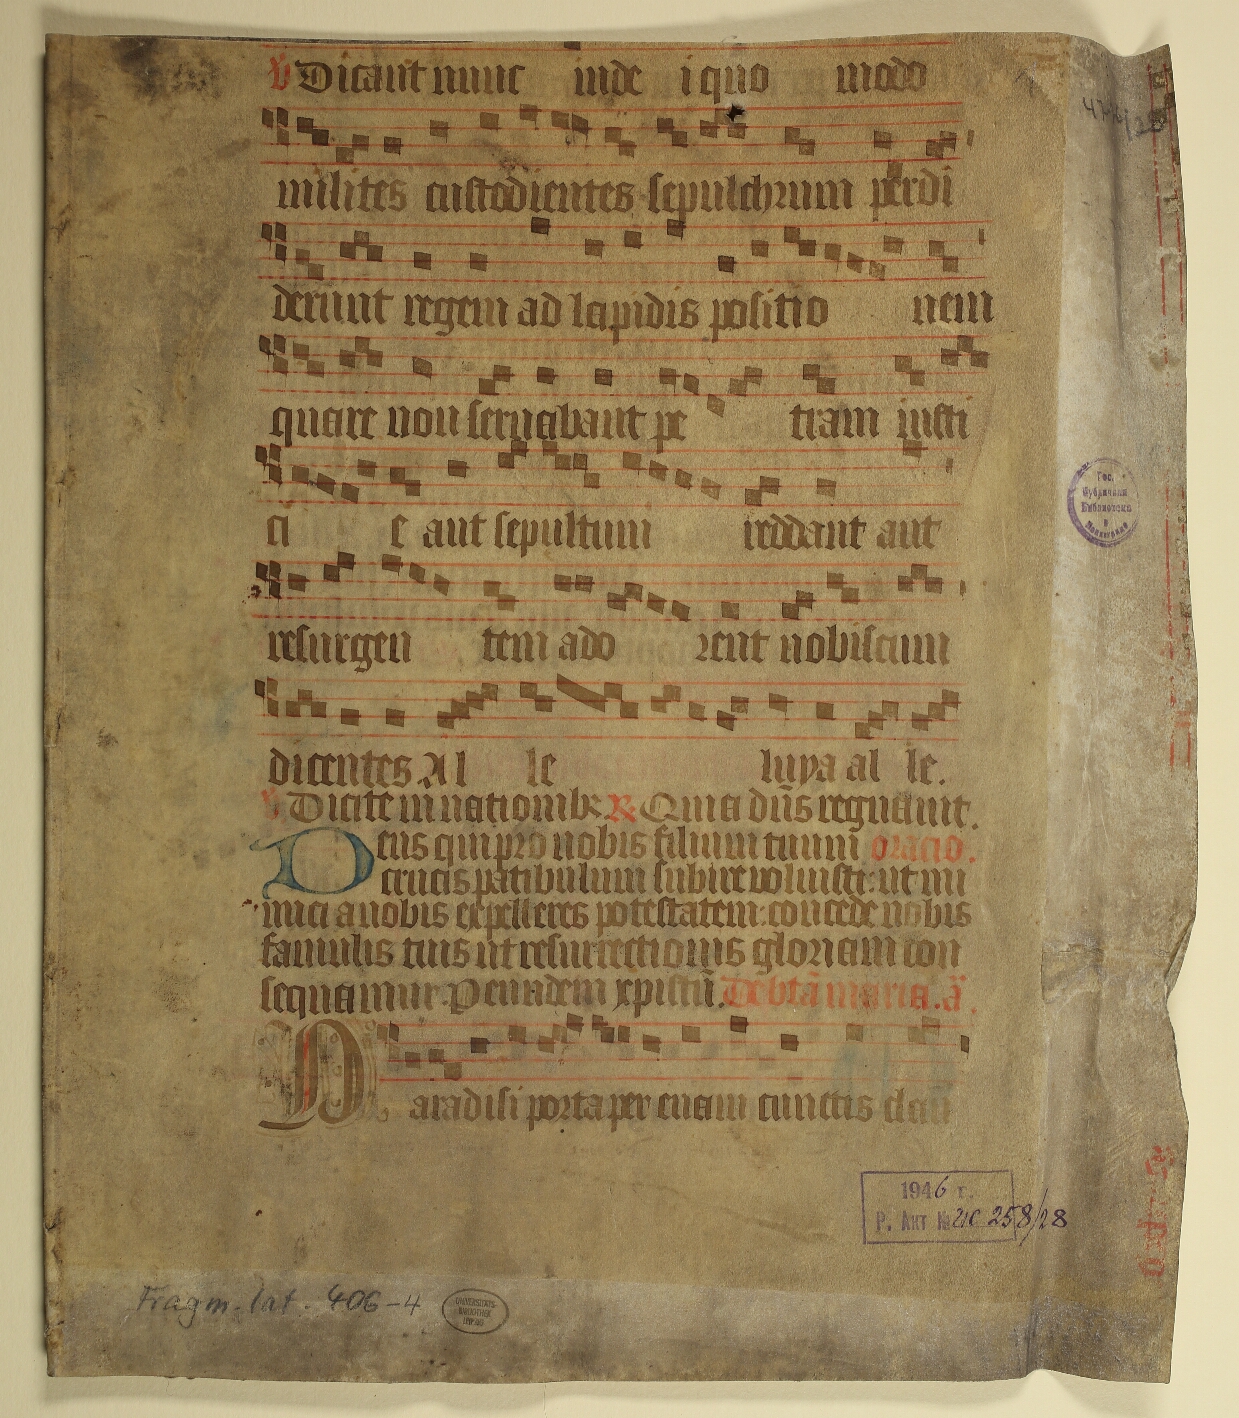 v Dicant nunc iude i quo modo
milites custodientes sepulchrum perdi
derunt regem ad lapidis positio nem
quare non seruabant pe tram iusti
ci e aut sepultum reddant aut
resurgen tem ado rent nobiscum
dicentes Al le luya al le.
v Dicite in nationibꝫ ℞ Quia dn̄s regnauit.
Deus qui pro nobis filium tuum oracio.
crucis patibulum subire voluisti: ut ini
mici a nobis expelleres potestatem: concede nobis
famulis tuis ut resurrectionis gloriam con
sequamur. P eundem xpistū. De btā maria. ā.
Paradisi porta per euam cunctis clau
Гос.
Публичная
Библиотека
в
Ленинграде
1946 г.
Р. Акт № ИС 258/28
Fragm. lat. 406-4
UNIVERSITÄTS-
BIBLIOTHEK
LEIPZIG